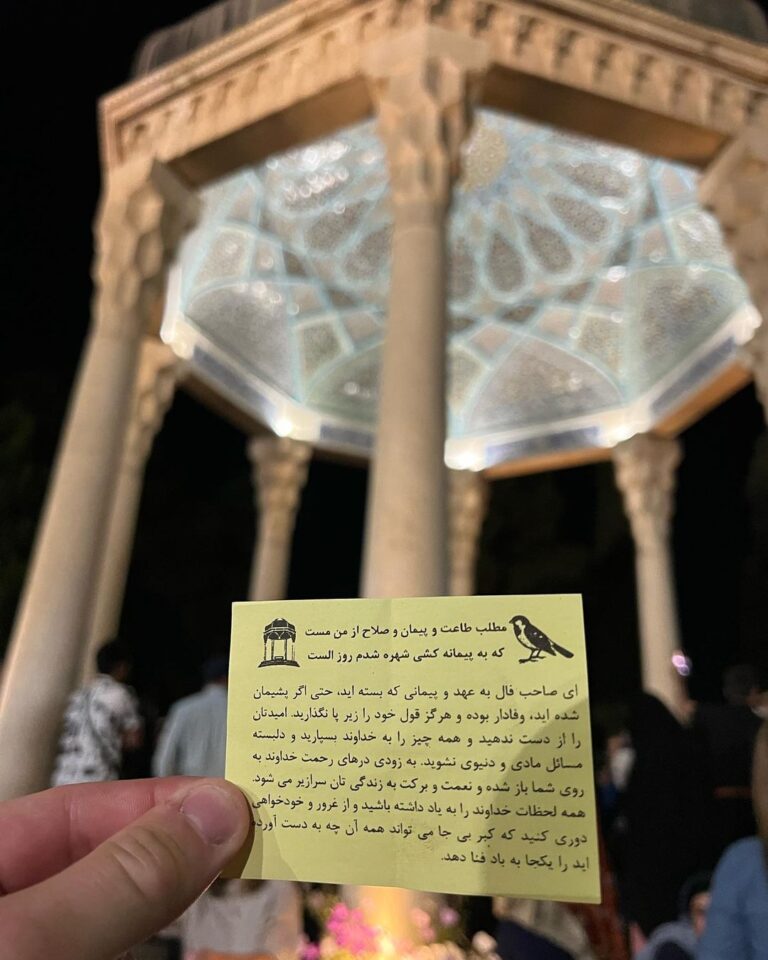 مطلب طاعت و پیمان و صلاح از من مست
که به پیمانه کشی شهره شدم روز الست
ای صاحب فال به عهد و پیمانی که بسته اید، حتی اگر پشیمان
شده اید، وفادار بوده و هرگز قول خود را زیر پا نگذارید. امیدتان
را از دست ندهید و همه چیز را به خداوند بسپارید و دلبسته
مسائل مادی و دنیوی نشوید. به زودی درهای رحمت خداوند به
روی شما باز شده و نعمت و برکت به زندگی تان سرازیر می شود.
همه لحظات خداوند را به یاد داشته باشید و از غرور و خودخواهی
دوری کنید که کبر بی جا می تواند همه آن چه به دست آورده
اید را یکجا به باد فنا دهد.